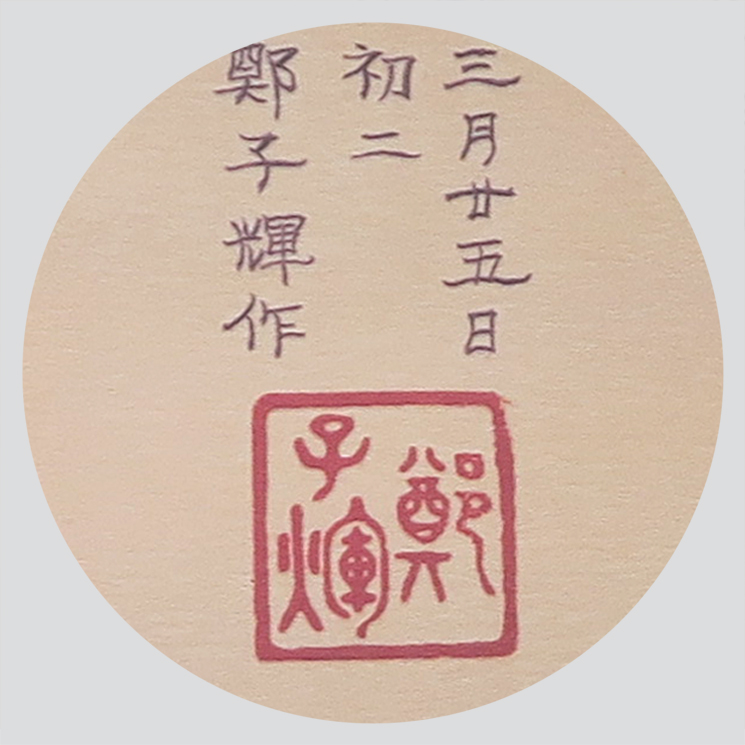 三月廿五日
初二
鄭子輝作
鄭子輝